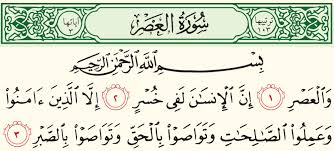 ترتيبها ١٠٣ سُورَةُ العَصْرِ آياتها ٣
بِسْمِ اللَّهِ الرَّحْمَٰنِ الرَّحِيمِ
وَٱلْعَصْرِ ١ إِنَّ ٱلْإِنسَٰنَ لَفِى خُسْرٍ ٢ إِلَّا ٱلَّذِينَ ءَامَنُوا۟
وَعَمِلُوا۟ ٱلصَّٰلِحَٰتِ وَتَوَاصَوْا۟ بِٱلْحَقِّ وَتَوَاصَوْا۟ بِٱلصَّبْرِ ٣